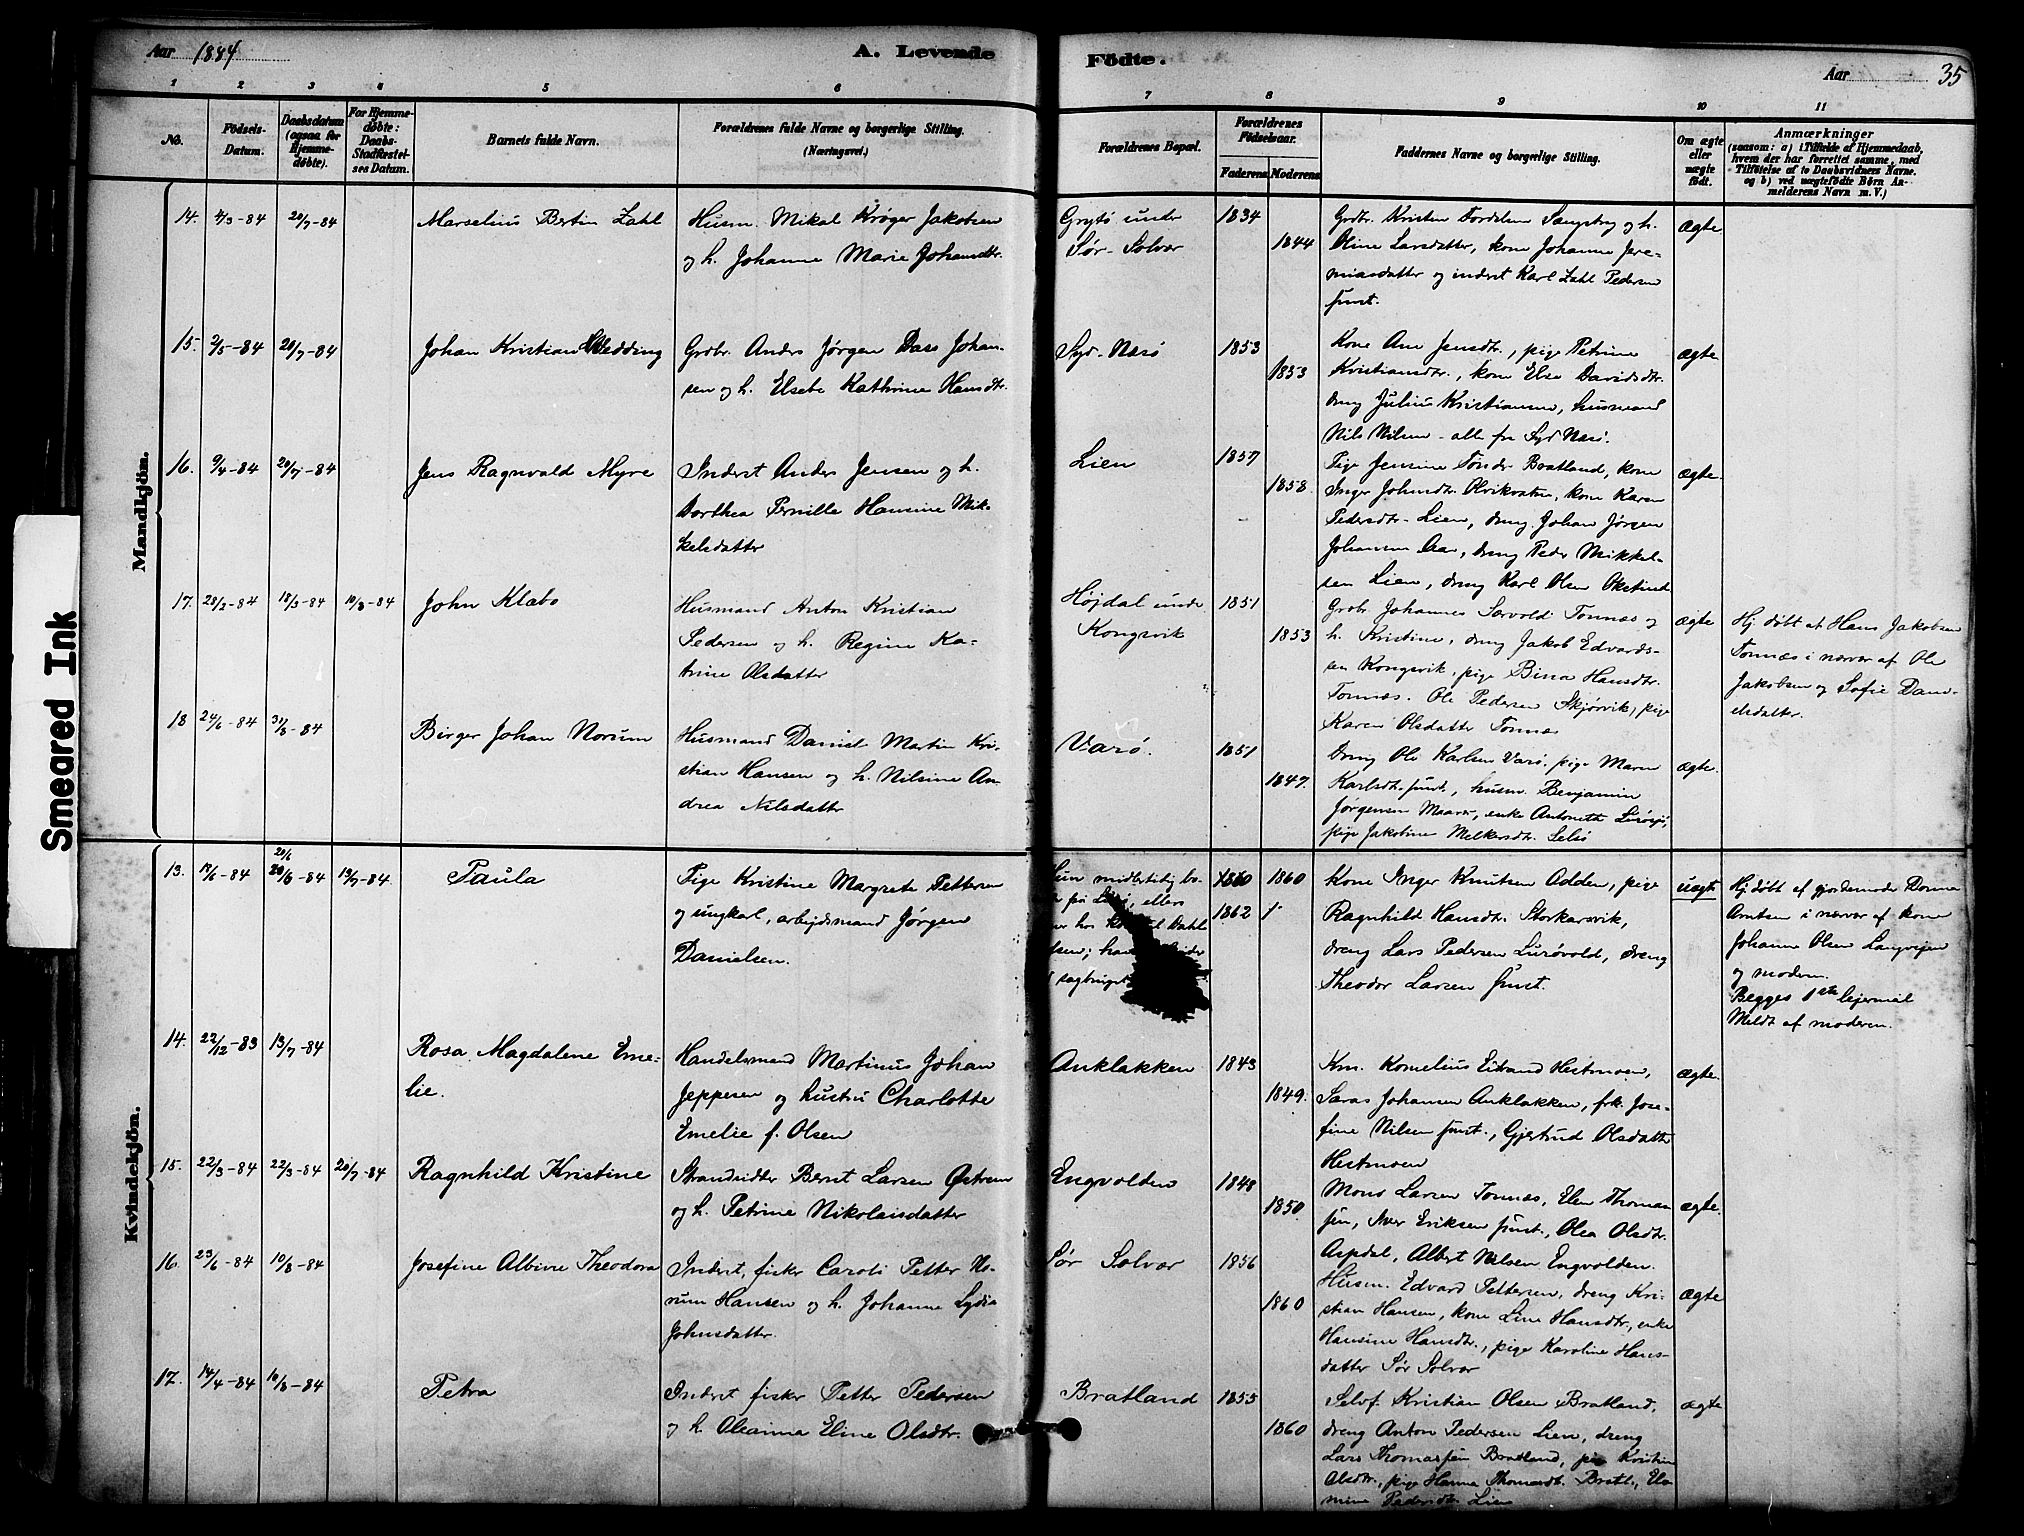 Aar 1884
A. Levende
Födte.
Aar
35
1 2 3 4 5 6 7 8 9 10 11
No.
Födsels-
Datum.
Daabsdatum
(ogsaa for
Hjemme-
döbte).
For Hjemme-
döbte:
Daabs-
Stadfæstel-
ses Datum.
Barnets fulde Navn.
Forældrenes fulde Navne og borgerlige Stilling.
(Næringsvei.)
Forældrenes Bopæl.
Forældrenes
Födselsaar.
Faderens. Moderens.
Faddernes Navne og borgerlige Stilling.
Om ægte
eller
uægte
födt.
Anmærkninger
(saasom: a) i Tilfælde af Hjemmedaab,
hvem der har forrettet samme, med
Tilföielse af to Daabsvidners Navne.
og b) ved uægtefödte Börn An-
melderens Navn m. V.)
Mandkjön.
14. 4/3-84 20/7-84
Marselius Bertin Zahl
Husm. Mikal Krøger Jakobsen
og h. Johanne Marie Johansdtr.
Grytø under
Sør-Solvær
1834
1844
Grdbr. Kristen Tordsen og h.
Oline Larsdatter, kone Johanne Jere-
miasdatter og inderst Karl Zahl Pedersen
smst.
ægte
15. 2/5-84 20/7-84
Johan Kristian Wedding
Grdbr. Anders Jørgen Dass Johan-
sen og h. Elsebe Kathrine Hansdtr.
Syd-Nesø
1853
1853
Kone Ane Jensdtr., pige Petrine
Kristiansdtr., kone Else Davidsdtr.
dreng Julius Kristiansen, husmand
Nils Nilsen - alle fra Syd Nesø.
ægte
16. 9/4-84 20/7-84
Jens Ragnvald Myre
Inderst Anders Jensen og h.
Dorthea Pernille Hansine Mik-
kelsdatter
Lien
1857
1858.
Pige Jensine Tønder Bratland, kone
Inger Johnsdtr. Olvikvatn, kone Karen
Pedersdtr. Lien, dreng Johan Jørgen
Johansen Aar, dreng Peder Mikkel-
sen Lien, dreng Karl Olsen Okstind
ægte.
17. 28/2-84 18/3-84 10/8-84
John Klæbo
Husmand Anton Kristian
Pedersen og h. Regine Ka-
trine Olsdatter
Højdal under
Kongsvik
1851
1853
Grdbr. Johannes Sørvold Tonnes og
h. Kristine, dreng Jakob Edvards-
sen Kongsvik, pige Bina Hansdtr.
Tonnes. Ole Pedersen Skjørvik, pige
Karen Olsdatter Tonnes
ægte
Hj. døbt af Hans Jakobsen
Tonnæs i nærvær af Ole
Jakobsen og Sofie Dani-
elsdatter.
18 24/6-84 31/8-84
Birger Johan Norum
Husmand Daniel Martin Kri-
stian Hansen og h. Nilsine An-
drea Nilsdatter
Varø.
1851
1847.
Dreng Ole Karlsen Varø, pige Maren
Karlsdtr. smst., husm. Benjamin
Jørgensen Maarø, enke Antonette Lurøsjø,
pige Jakobine Melkersdtr. Selsø
ægte.
Kvindekjön.
13. 17/6-84 20/6
20/6-84 13/7-84.
Paula
Pige Kristine Margrete Pettersen
og ungkarl, arbejdsmand Jørgen
Danielsen.
Hun midlertidig bo-
på eller
hos Dahl
sen; han
sagbruget
1860
1862
1860
Kone Inger Knutsen Odden, pige
Ragnhild Hansdtr. Storkarsvik,
dreng Lars Pedersen Lurøvold, dreng
Theodor Larsen smst.
uægte
Hj. døbt af gjordemoder Donna
Arntsen i nærvær af kone
Johanne Olsen Langvejen
og modern.
Begges 1ste lejermål
Meldt af moderen.
14. 22/12-83 13/7-84
Rosa Magdalene Eme-
lie.
Handelsmand Martinus Johan
Jeppesen og hustru Charlotte
Emelie f. Olsen
Anklakken
1843
1849.
Km. Kornelius Edvand Hestmoen,
Saras Johansen Anklakken, frk. Jose-
fine Nilsen smst., Gjertrud Olsdatter
Hestmoen
ægte.
15. 22/3-84 22/3-84 20/7-84
Ragnhild Kristine
Strandsidder Bernt Larsen Østrem
og h. Petrine Nikolaisdatter
Engvolden
1848
1850.
Mons Larsen Tonnes, Elen Thomas
sen, Iver Eriksen smst., Olea Olsdtr.
Aspdal, Albert Nilsen Engvolden.
ægte.
16. 23/6-84 10/8-84
Josefine Albine Theodora
Inderst, fisker Caroli Petter No-
rum Hansen og h. Johanne Lydia
Johnsdatter.
Sør Solvær
1856
1860
Husm. Edvard Pettersen, dreng Kri-
stian Hansen, kone Line Hansdtr., enke
Hansine Hansdtr., pige Karoline Hans-
datter Sør Solvær
ægte
17. 14/4-84 10/8-84
Petra
Inderst fisker Petter Pedersen
og h Oleanna Eline Olsdtr.
Bratland
1855
1860
Selvf. Kristian Olsen Bratland,
dreng Anton Pedersen Lien, dreng
Lars Thomassen Bratland, pige Kristine
Olsdtr., pige Hanna Thomasdt. Bratl., Ele-
mine Pedersdtr. Lien
ægte
Smeared Ink